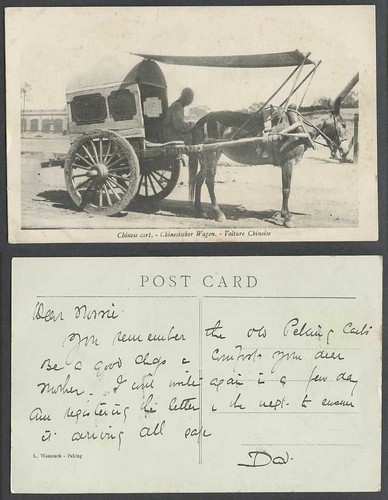 Chinese cart. - Chinesischer Wagen. - Voiture Chinoise
POST CARD
Dear Morrie
You remember the old Peking Carts
Be a good chap & comfort your dear
Mother. I will write again in a few day
Am registering this letter & the next to ensure
it arriving all safe
Dad.
L. Wannieck - Peking